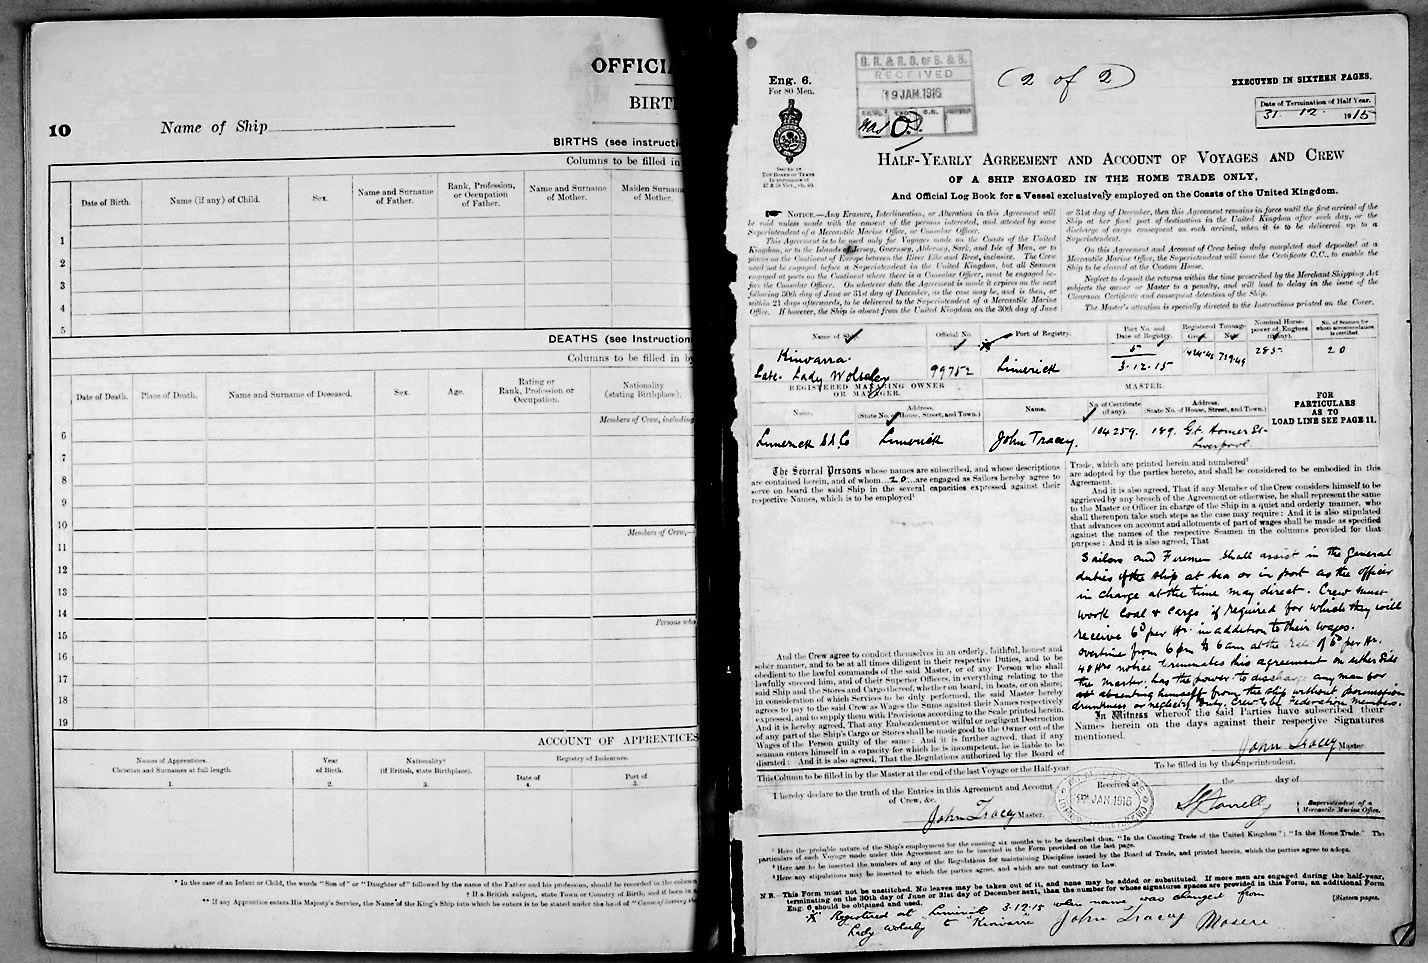 10
Name of Ship
OFFICIA
BIRT
BIRTHS (see instructi
Columns to be filled in
Date of Birth.
Name (if any) of Child.
Sex.
Name and Surname of Father.
Rank, Profession, or Occupation of Father.
Name and Surname of Mother.
Maiden Surname of Mother.
1
2
3
4
5
DEATHS (see Instruction
Columns to be filled in by
Date of Death.
Place of Death.
Name and Surname of Deceased.
Sex.
Age.
Rating or Rank, Profession or Occupation.
Nationality (stating Birthplace).
Members of Crew, including
6
7
8
9
10
Members of Crew,—
11
12
13
14
Persons who
15
16
17
18
19
ACCOUNT OF APPRENTICES
Names of Apprentices.
Christian and Surnames at full length.
1.
Year of Birth.
2.
Nationality†
(if British, state Birthplace).
3.
Registry of Indenture.
Date of
4.
Port of
5.
* In the case of an Infant or Child, the words "Son of" or "Daughter of" followed by the name of the Father and his profession, should be recorded in the column
† If a British subject, state Town or Country of Birth, and if born in a
** If any Apprentice enters His Majesty's Service, the Name of the King's Ship into which he enters is to be stated under the head of "Cause of leaving the
Eng. 6.
For 80 Men.
ISSUED BY
THE BOARD OF TRADE
G. R. & R. O. OF S. & S.
RECEIVED
19 JAN. 1916
(2 of 2)
EXECUTED IN SIXTEEN PAGES.
Date of Termination of Half Year.
31 12 1915
HALF-YEARLY AGREEMENT AND ACCOUNT OF VOYAGES AND CREW
OF A SHIP ENGAGED IN THE HOME TRADE ONLY,
And Official Log Book for a Vessel exclusively employed on the Coasts of the United Kingdom.
NOTICE.—Any Erasure, Interlineation, or Alteration in this Agreement will
be void unless made with the consent of the persons interested, and attested by some
Superintendent of a Mercantile Marine Office, or Consular Officer.
This Agreement is to be used only for Voyages made on the Coasts of the United
Kingdom, or to the Islands of Jersey, Guernsey, Alderney, Sark, and Isle of Man, or to
places on the Continent of Europe between the River Elbe and Brest, inclusive. The Crew
need not be engaged before a Superintendent in the United Kingdom, but all Seamen
engaged at ports on the Continent where there is a Consular Officer, must be engaged be-
fore the Consular Officer. On whatever date the Agreement is made it expires on the next
following 30th day of June or 31st day of December, as the case may be, and is then, or
within 21 days afterwards, to be delivered to the Superintendent of a Mercantile Marine
Office. If however, the Ship is absent from the United Kingdom on the 30th day of June
or 31st day of December, then this Agreement remains in force until the first arrival of the
Ship at her final port of destination in the United Kingdom after such day, or the
discharge of cargo consequent on such arrival, when it is to be delivered up to a
Superintendent.
On this Agreement and Account of Crew being duly completed and deposited at a
Mercantile Marine Office, the Superintendent will issue the Certificate C.C., to enable the
Ship to be cleared at the Custom House.
Neglect to deposit the returns within the time prescribed by the Merchant Shipping Act
subjects the owner or Master to a penalty, and will lead to delay in the issue of the
Clearance Certificate and consequent detention of the Ship.
The Master's attention is specially directed to the Instructions printed on the Cover.
Name of Ship.
Official No.
Port of Registry.
Port No. and Date of Registry.
Registered Tonnage
Gross. Nett.
Nominal Horse-power of Engines (if any).
No. of Seamen for whom accommodation is certified.
Kinvarra
Late. Lady Wolseley
99752
Limerick
5
3.12.15
285.
20
REGISTERED MANAGING OWNER OR MANAGER.
MASTER.
Name.
Address.
(State No. of House, Street, and Town.)
Name.
No. of Certificate (if any).
Address.
State No. of House, Street, and Town.)
Limerick S.S. Co
Limerick
John Tracey.
104259.
189. Gt. Homer St-
Liverpool
FOR
PARTICULARS
AS TO
LOAD LINE SEE PAGE 11.
The Several Persons whose names are subscribed, and whose descriptions
are contained herein, and of whom...20...are engaged as Sailors hereby agree to
serve on board the said Ship in the several capacities expressed against their
respective Names, which is to be employed¹
And the Crew agree to conduct themselves in an orderly, faithful, honest and
sober manner, and to be at all times diligent in their respective Duties, and to be
obedient to the lawful commands of the said Master, or of any Person who shall
lawfully succeed him, and of their Superior Officers, in everything relating to the
said Ship and the Stores and Cargo thereof, whether on board, in boats, or on shore;
in consideration of which Services to be duly performed, the said Master hereby
agrees to pay to the said Crew as Wages the Sums against their Names respectively
expressed, and to supply them with Provisions according to the Scale printed herein.
And it is hereby agreed, That any Embezzlement or wilful or negligent Destruction
of any part of the Ship's Cargo or Stores shall be made good to the Owner out of the
Wages of the Person guilty of the same: And it is further agreed, that if any
seaman enters himself in a capacity for which he is incompetent, he is liable to be
disrated: And it is also agreed, That the Regulations authorized by the Board of
Trade, which are printed herein and numbered²
are adopted by the parties hereto, and shall be considered to be embodied in this
Agreement.
And it is also agreed, That if any Member of the Crew considers himself to be
aggrieved by any breach of the Agreement or otherwise, he shall represent the same
to the Master or Officer in charge of the Ship in a quiet and orderly manner, who
shall thereupon take such steps as the case may require: And it is also stipulated
that advances on account and allotments of part of wages shall be made as specified
against the names of the respective Seamen in the columns provided for that
purpose: And it is also agreed, That
Sailors and Firemen shall assist in the General
duties of the ship at sea or in port as the officer
in charge at the time may direct. Crew must
work Coal & Cargo if required for which they will
receive 6d per Hr. in addition to their wages.
overtime from 6 pm to 6 am at the rate of 6d per Hr.
40 Hrs notice terminates this agreement on either side
the master has the power to discharge any man for
absenting himself from the ship without permission
drunkness or neglect of Duty. Crew to be Federation members.
In Witness whereof the said Parties have subscribed their
Names herein on the days against their respective Signatures
mentioned.
John Tracey Master
This Column to be filled in by the Master at the end of the last Voyage or the Half-year
I hereby declare to the truth of the Entries in this Agreement and Account
of Crew, &c.
John Tracey Master.
To be filled in by the Superintendent.
Received the day of
JAN 1916
Superintendent of a
Mercantile Marine Office.
¹ Here the probable nature of the Ship's employment for the ensuing six months is to be described thus, "In the Coasting Trade of the United Kingdom"; "In the Home Trade." The
particulars of each Voyage made under this Agreement are to be inserted in the Form provided on the last page.
² Here are to be inserted the numbers of any of the Regulations for maintaining Discipline issued by the Board of Trade, and printed herein, which the parties agree to adopt.
³ Here any stipulations may be inserted to which the parties agree, and which are not contrary to Law.
N.B.—This Form must not be unstitched. No leaves may be taken out of it, and none may be added or substituted. If more men are engaged during the half-year,
terminating on the 30th day of June or 31st day of December next, than the number for whose signatures spaces are provided in this Form, an additional Form
Eng. 6 should be obtained and used.
[Sixteen pages.
* Registered at Limerick 3.12.15 when name was changed from
"Lady Wolseley to "Kinvarra John Tracey Master